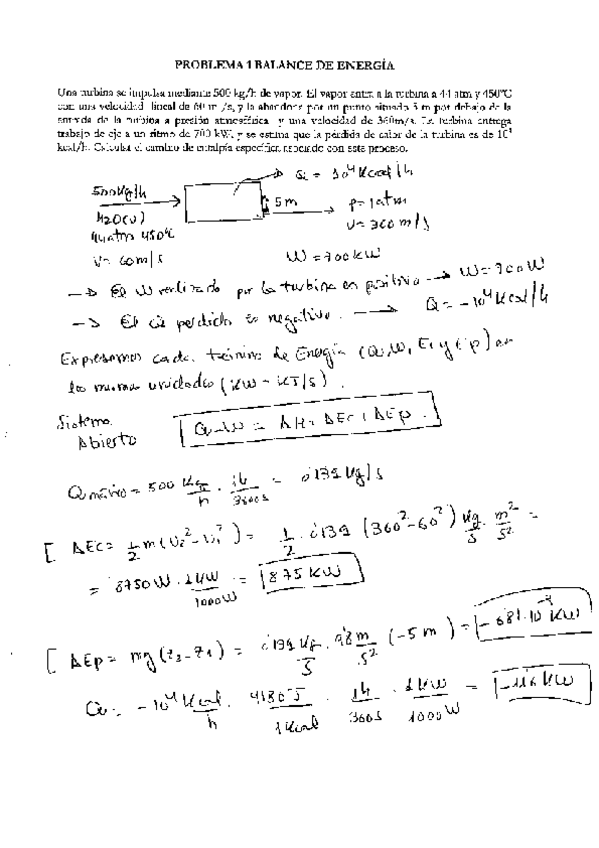 PROBLEMA 1 BALANCE DE ENERGÍA
Una turbina se impulsa mediante 500 kg/h de vapor. El vapor entra a la turbina a 44 atm y 450°C
con una velocidad lineal de 60 m/s, y la abandona por un punto situado 5 m por debajo de la
entrada de la turbina a presión atmosférica y una velocidad de 360m/s. La turbina entrega
trabajo de eje a un ritmo de 700 kW, y se estima que la pérdida de calor de la turbina es de 10⁴
kcal/h. Calcular el cambio de entalpía específica asociado con este proceso.
Q = 10⁴ Kcal/h
500 Kg/h
5 m
P=1atm
H2O(v)
44 atm 450°C
v=360 m/s
v=60 m/s
W=700 KW
→ El W realizado por la turbina es positivo → W=700W
→ El Q perdido es negativo. → Q=-10⁴ Kcal/h
Expresamos cada término de Energía (Q,W, Ec y Ep) en
las mismas unidades (KW = KJ/s).
Sistema
Abierto
Q-W = ΔH+ΔEc+ΔEp.
Q másico = 500 Kg/h · 1h/3600s = 0'139 Kg/s
[ ΔEc = 1/2 m (v₂²-v₁²) = 1/2 · 0'139 (360²-60²) Kg/s · m²/s² =
= 8750W · 1KW/1000W = 8'75 KW
[ ΔEp = mg (z₂-z₁) = 0'139 Kg/s · 9'8 m/s² (-5 m) = -6'81·10⁻³ KW
Q = -10⁴ Kcal/h · 4180 J/1Kcal · 1h/3600s · 1KW/1000W = -11'6 KW